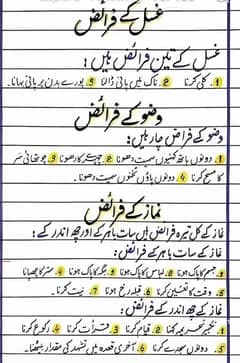 غسل کے فرائض
غسل کے تین فرائض ہیں:
1 کلی کرنا 2 ناک میں پانی ڈالنا 3 پورے بدن پر پانی بہانا۔
وضو کے فرائض
وضو کے فرائض چار ہیں:
1 دونوں ہاتھ کہنیوں سمیت دھونا 2 چہرے کا دھونا 3 چوتھائی سر
کا مسح کرنا 4 دونوں پاؤں ٹخنوں سمیت دھونا۔
نماز کے فرائض
نماز کے کل تیرہ فرائض ہیں سات باہر کے اور چھ اندر کے:
نماز کے سات باہر کے فرائض:
1 جسم کا پاک ہونا 2 لباس کا پاک ہونا 3 جگہ کا پاک ہونا 4 ستر کا چھپانا
5 وقت کا تعین کرنا 6 قبلہ رخ ہونا 7 نیت کرنا۔
نماز کے چھ اندر کے فرائض:
1 تکبیر تحریمہ کہنا 2 قیام کرنا 3 قرأت کرنا 4 رکوع کرنا
5 دونوں سجدے کرنا 6 آخری قعدہ میں تشہد کی مقدار بیٹھنا۔